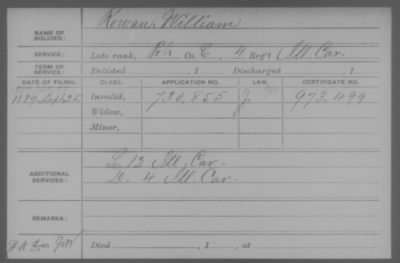 NAME OF SOLDIER: Rowan, William
SERVICE: Late rank, Co. C, 4 Reg't Ill. Cav.
TERM OF SERVICE: Enlisted , 1 Discharged , 1
DATE OF FILING. CLASS. APPLICATION NO. LAW. CERTIFICATE NO.
1889 Sept 25. Invalid, 730,855 J. 973,499
Widow,
Minor,
ADDITIONAL SERVICES: L. 12 Ill. Cav.
D. 4 Ill. Cav.
REMARKS:
Died , 1 , at